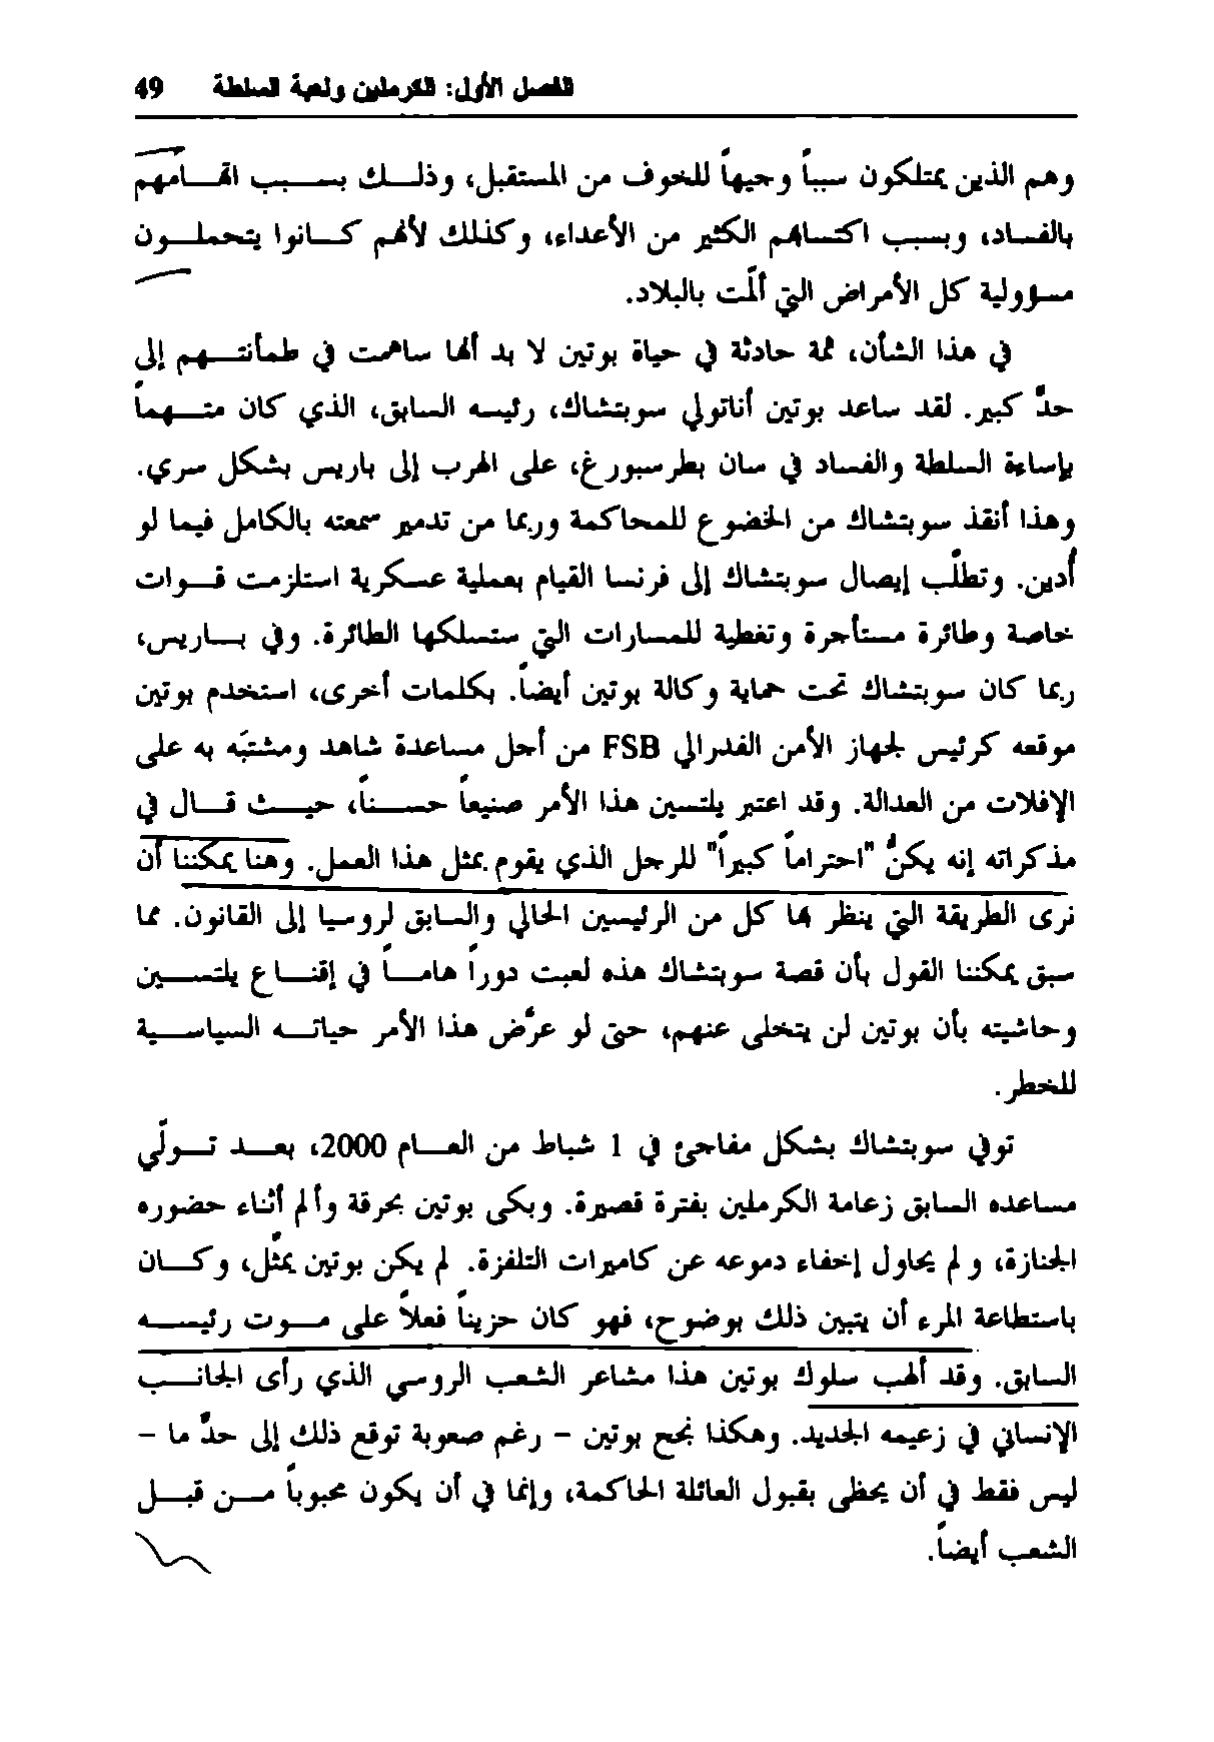 الفصل الأول: الكرملين ولعبة السلطة 49
وهم الذين يمتلكون سبباً وجيهاً للخوف من المستقبل، وذلك بسبب اتهامهم
بالفساد، وبسبب اكتسابهم الكثير من الأعداء، وكذلك لأنهم كانوا يتحملون
مسؤولية كل الأمراض التي ألمّت بالبلاد.
في هذا الشأن، ثمة حادثة في حياة بوتين لا بد أنها ساهمت في طمأنتهم إلى
حدٍّ كبير. لقد ساعد بوتين أناتولي سوبتشاك، رئيسه السابق، الذي كان متهماً
بإساءة السلطة والفساد في سان بطرسبورغ، على الهرب إلى باريس بشكل سري.
وهذا أنقذ سوبتشاك من الخضوع للمحاكمة وربما من تدمير سمعته بالكامل فيما لو
أُدين. وتطلّب إيصال سوبتشاك إلى فرنسا القيام بعملية عسكرية استلزمت قوات
خاصة وطائرة مستأجرة وتغطية للمسارات التي ستسلكها الطائرة. وفي باريس،
ربما كان سوبتشاك تحت حماية وكالة بوتين أيضاً. بكلمات أخرى، استخدم بوتين
موقعه كرئيس لجهاز الأمن الفدرالي FSB من أجل مساعدة شاهد ومشتبَه به على
الإفلات من العدالة. وقد اعتبر يلتسين هذا الأمر صنيعاً حسناً، حيث قال في
مذكراته إنه يكنُّ "احتراماً كبيراً" للرجل الذي يقوم بمثل هذا العمل. وهنا يمكننا أن
نرى الطريقة التي ينظر بها كل من الرئيسين الحالي والسابق لروسيا إلى القانون. مما
سبق يمكننا القول بأن قصة سوبتشاك هذه لعبت دوراً هاماً في إقناع يلتسين
وحاشيته بأن بوتين لن يتخلى عنهم، حتى لو عرّض هذا الأمر حياته السياسية
للخطر.
توفي سوبتشاك بشكل مفاجئ في 1 شباط من العام 2000، بعد تولّي
مساعده السابق زعامة الكرملين بفترة قصيرة. وبكى بوتين بحرقة وألم أثناء حضوره
الجنازة، ولم يحاول إخفاء دموعه عن كاميرات التلفزة. لم يكن بوتين يمثّل، وكان
باستطاعة المرء أن يتبين ذلك بوضوح، فهو كان حزيناً فعلاً على موت رئيسه
السابق. وقد ألهب سلوك بوتين هذا مشاعر الشعب الروسي الذي رأى الجانب
الإنساني في زعيمه الجديد. وهكذا نجح بوتين – رغم صعوبة توقع ذلك إلى حدٍّ ما –
ليس فقط في أن يحظى بقبول العائلة الحاكمة، وإنما في أن يكون محبوباً من قبل
الشعب أيضاً.